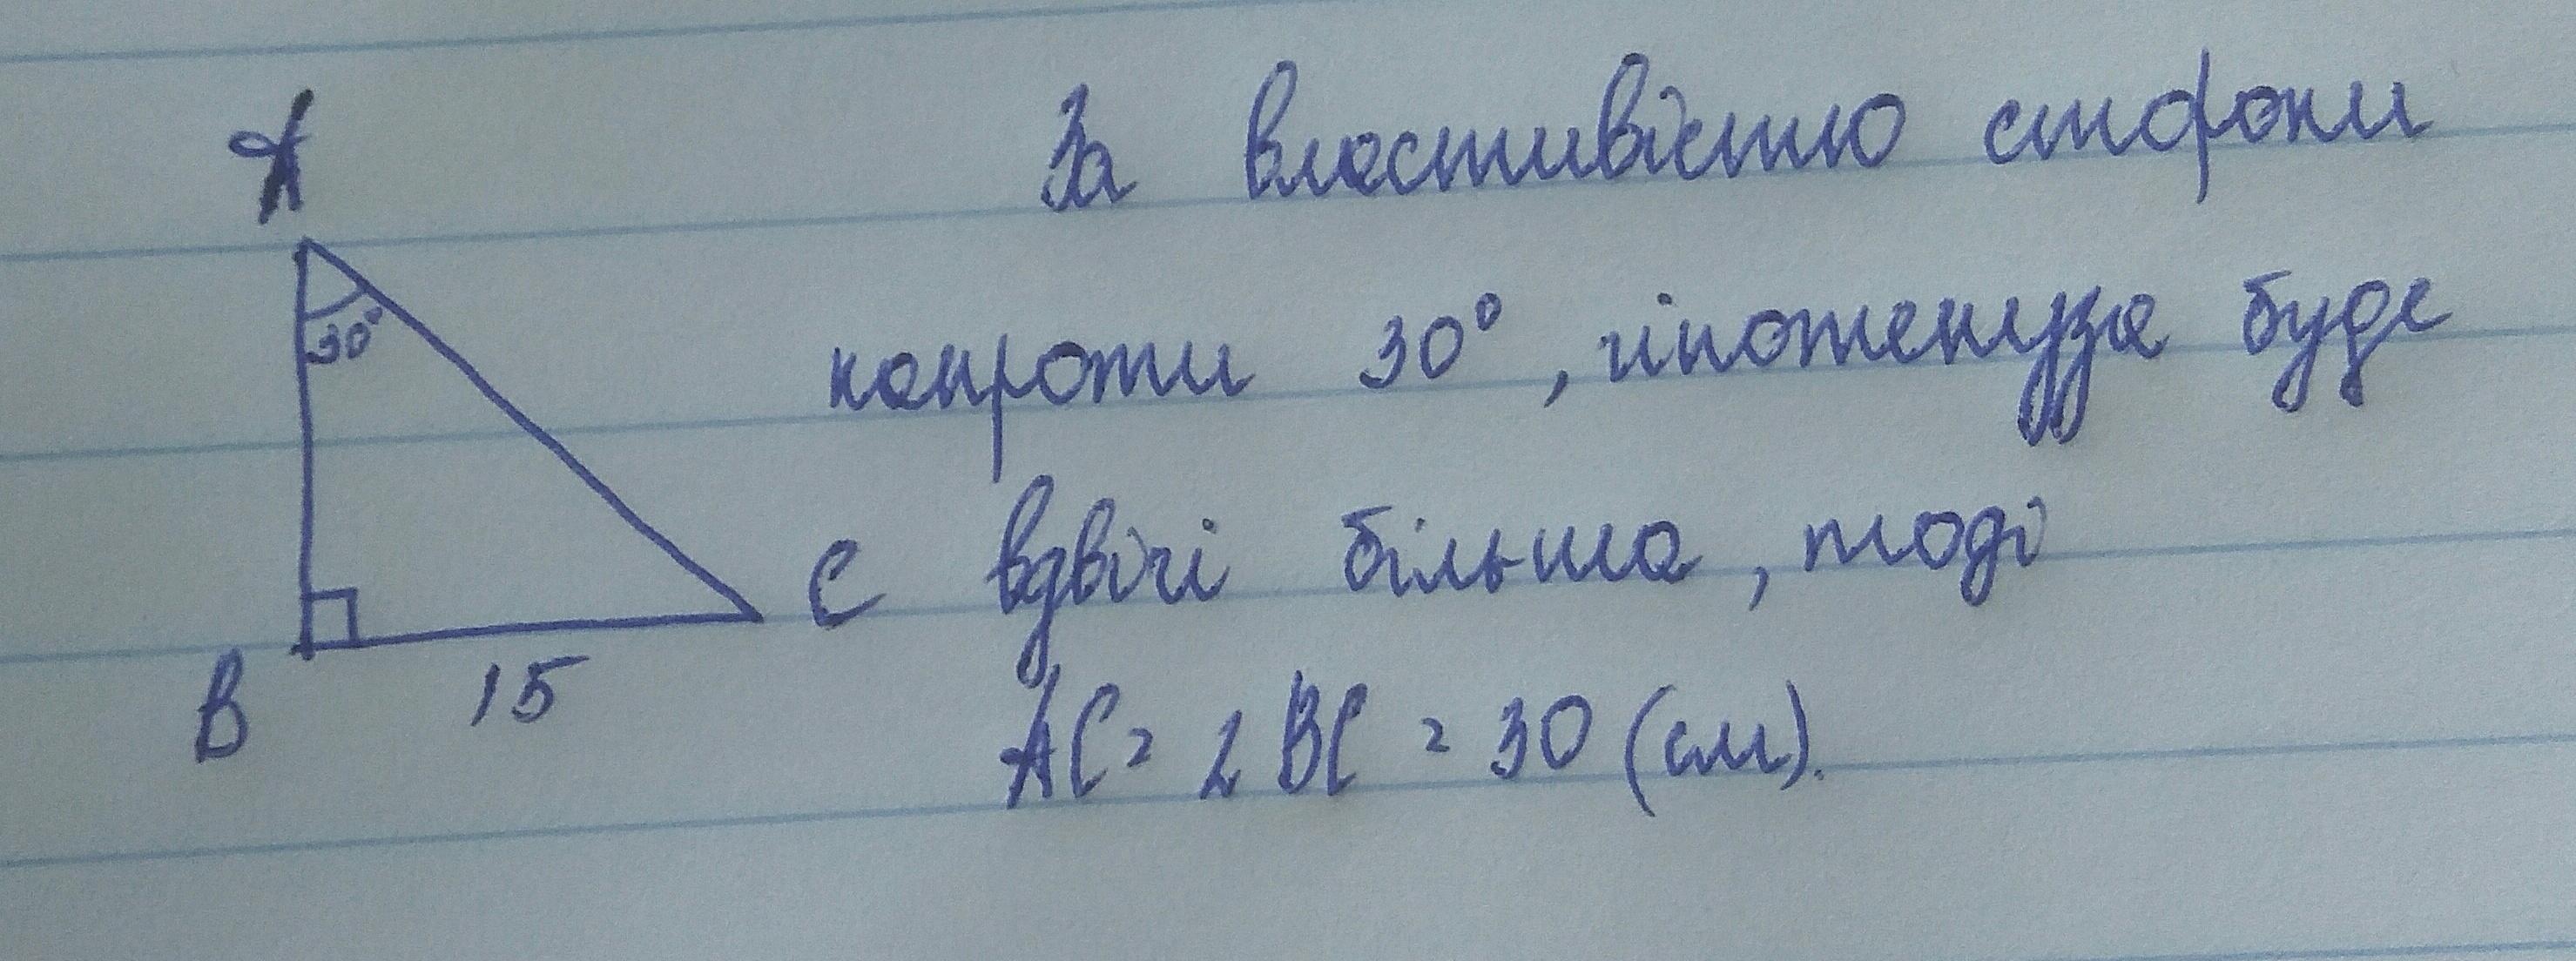 A
За властивістю сторони
30°
напроти 30°, гіпотенуза буде
C
вдвічі більша, тоді
B
15
AC = 2 BC = 30 (см).